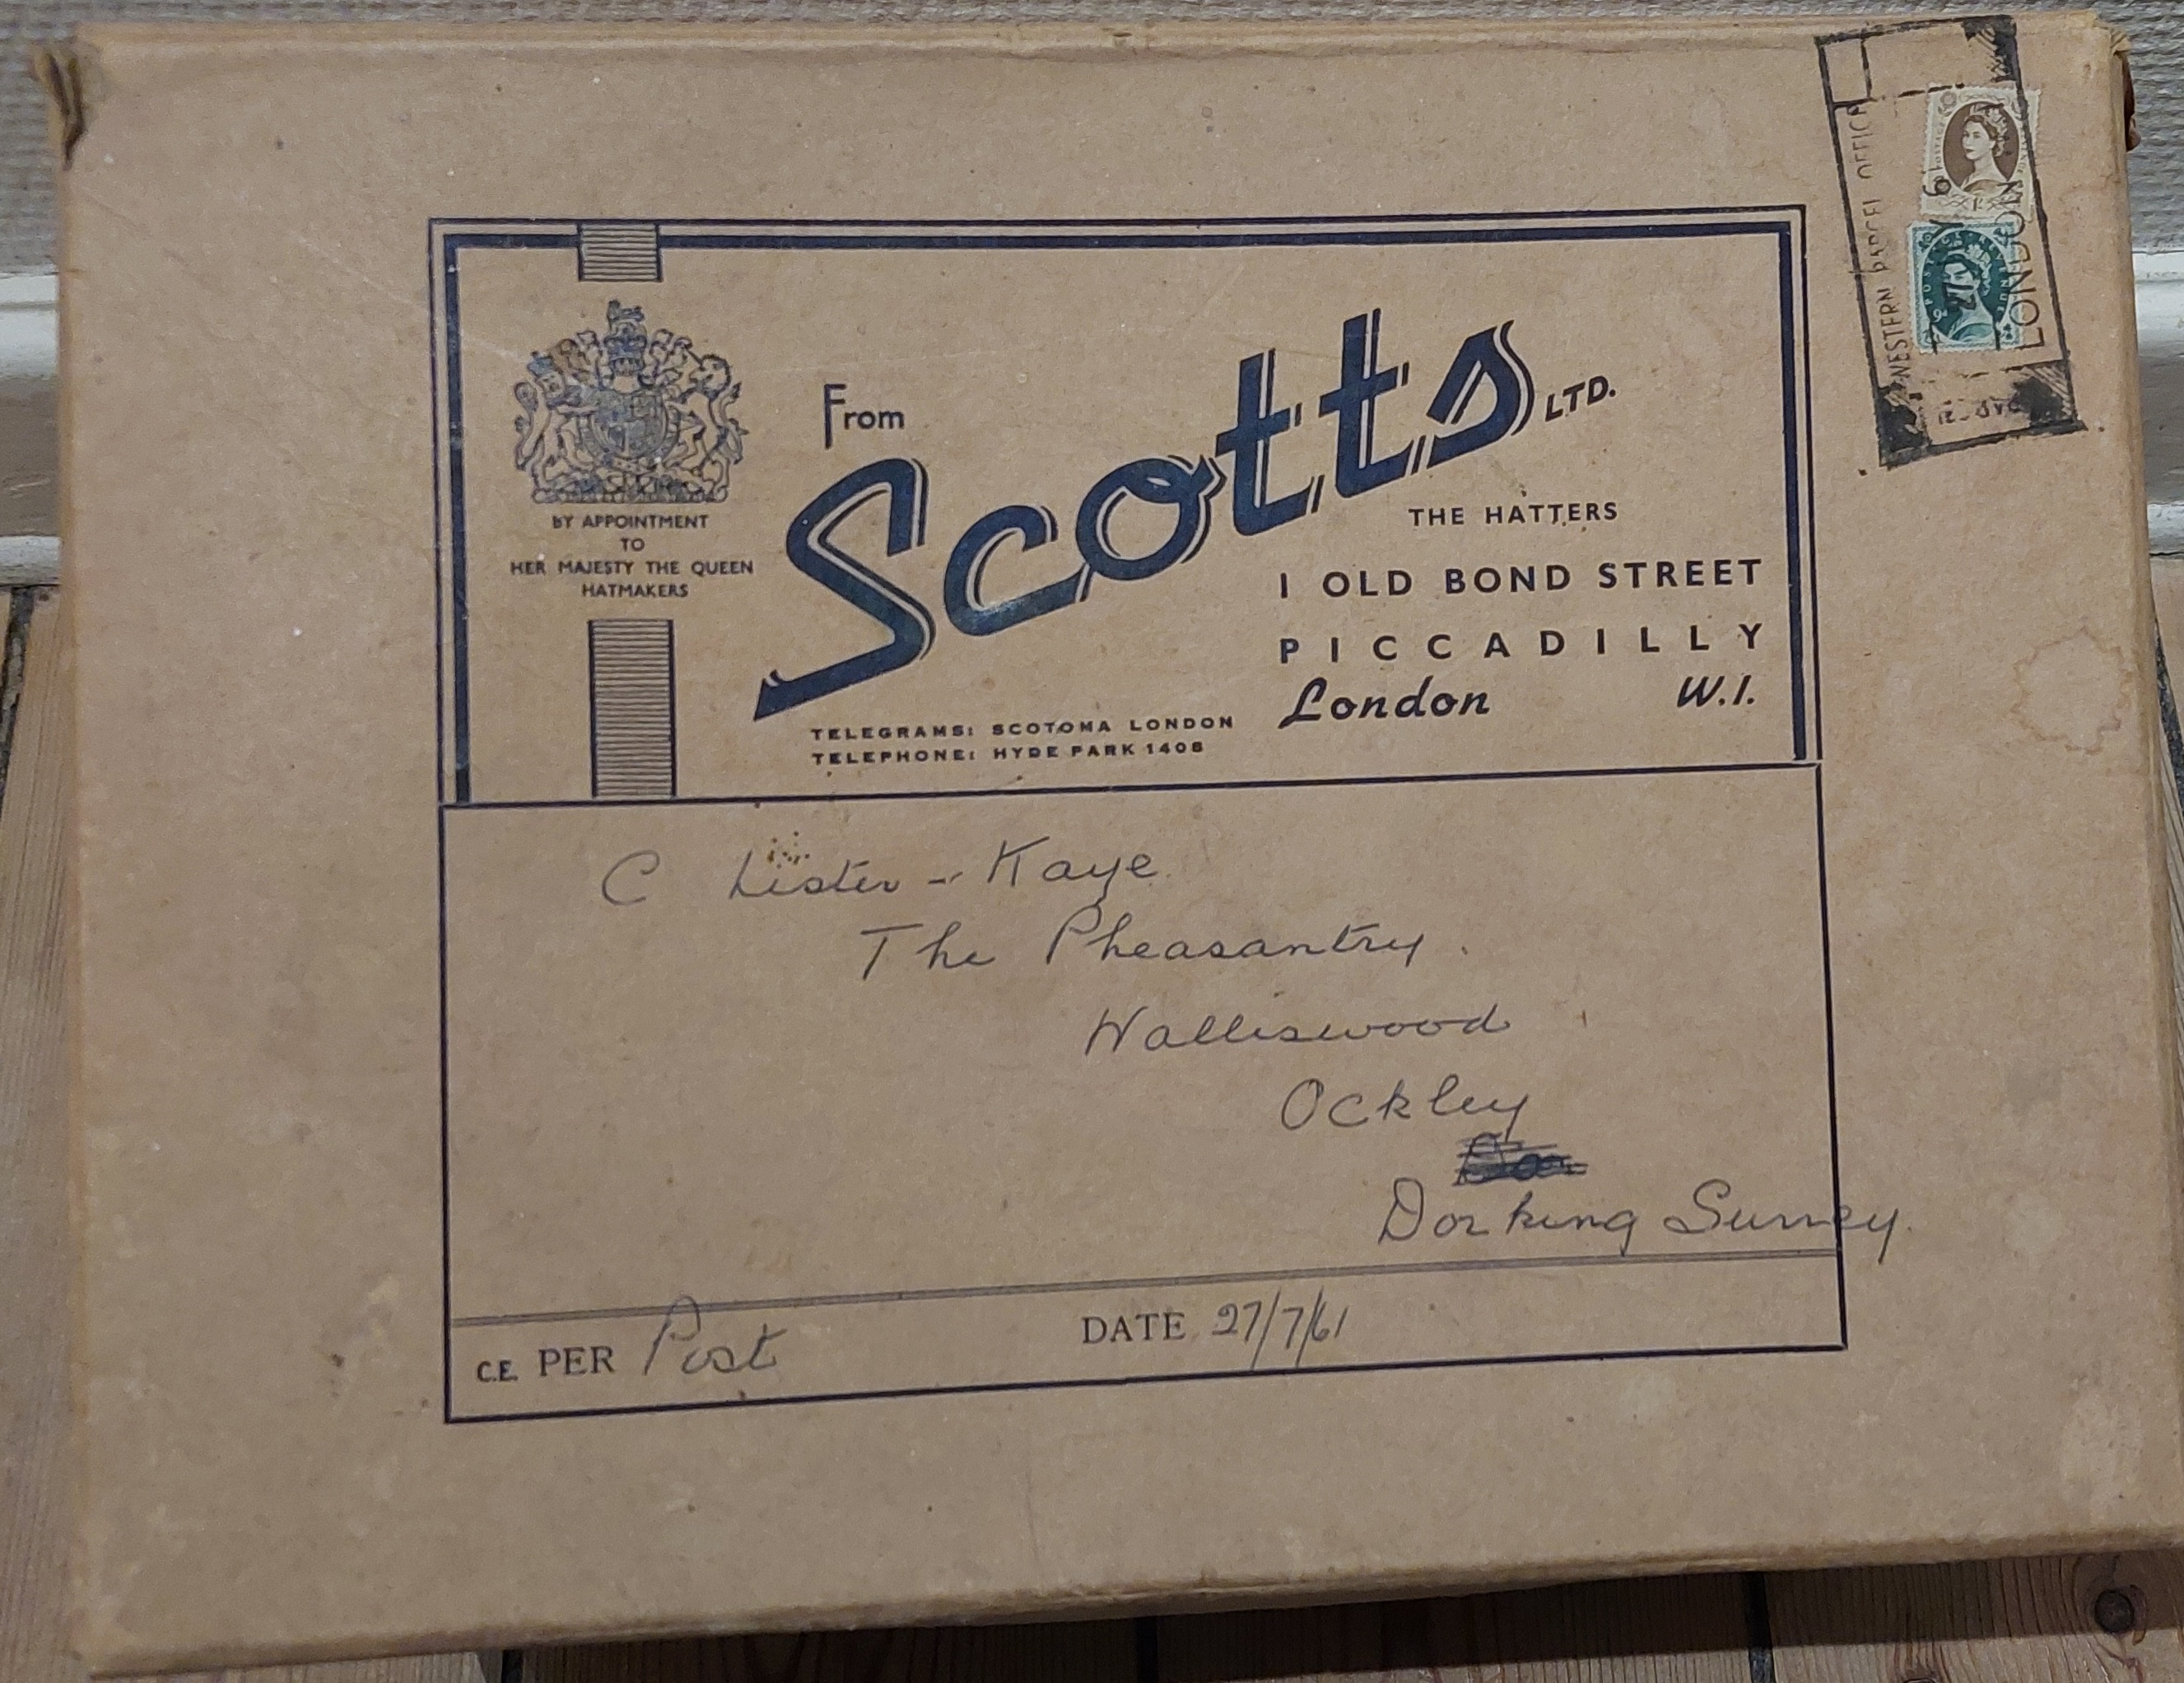 From
Scotts LTD.
THE HATTERS
1 OLD BOND STREET
PICCADILLY
London W.1.
BY APPOINTMENT
TO
HER MAJESTY THE QUEEN
HATMAKERS
TELEGRAMS: SCOTOMA LONDON
TELEPHONE: HYDE PARK 1408
C Lister - Kaye
The Pheasantry.
Walliswood
Ockley
Dorking Surrey.
C.E. PER Post
DATE 27/7/61
WESTERN PARCEL OFFICE
LONDON